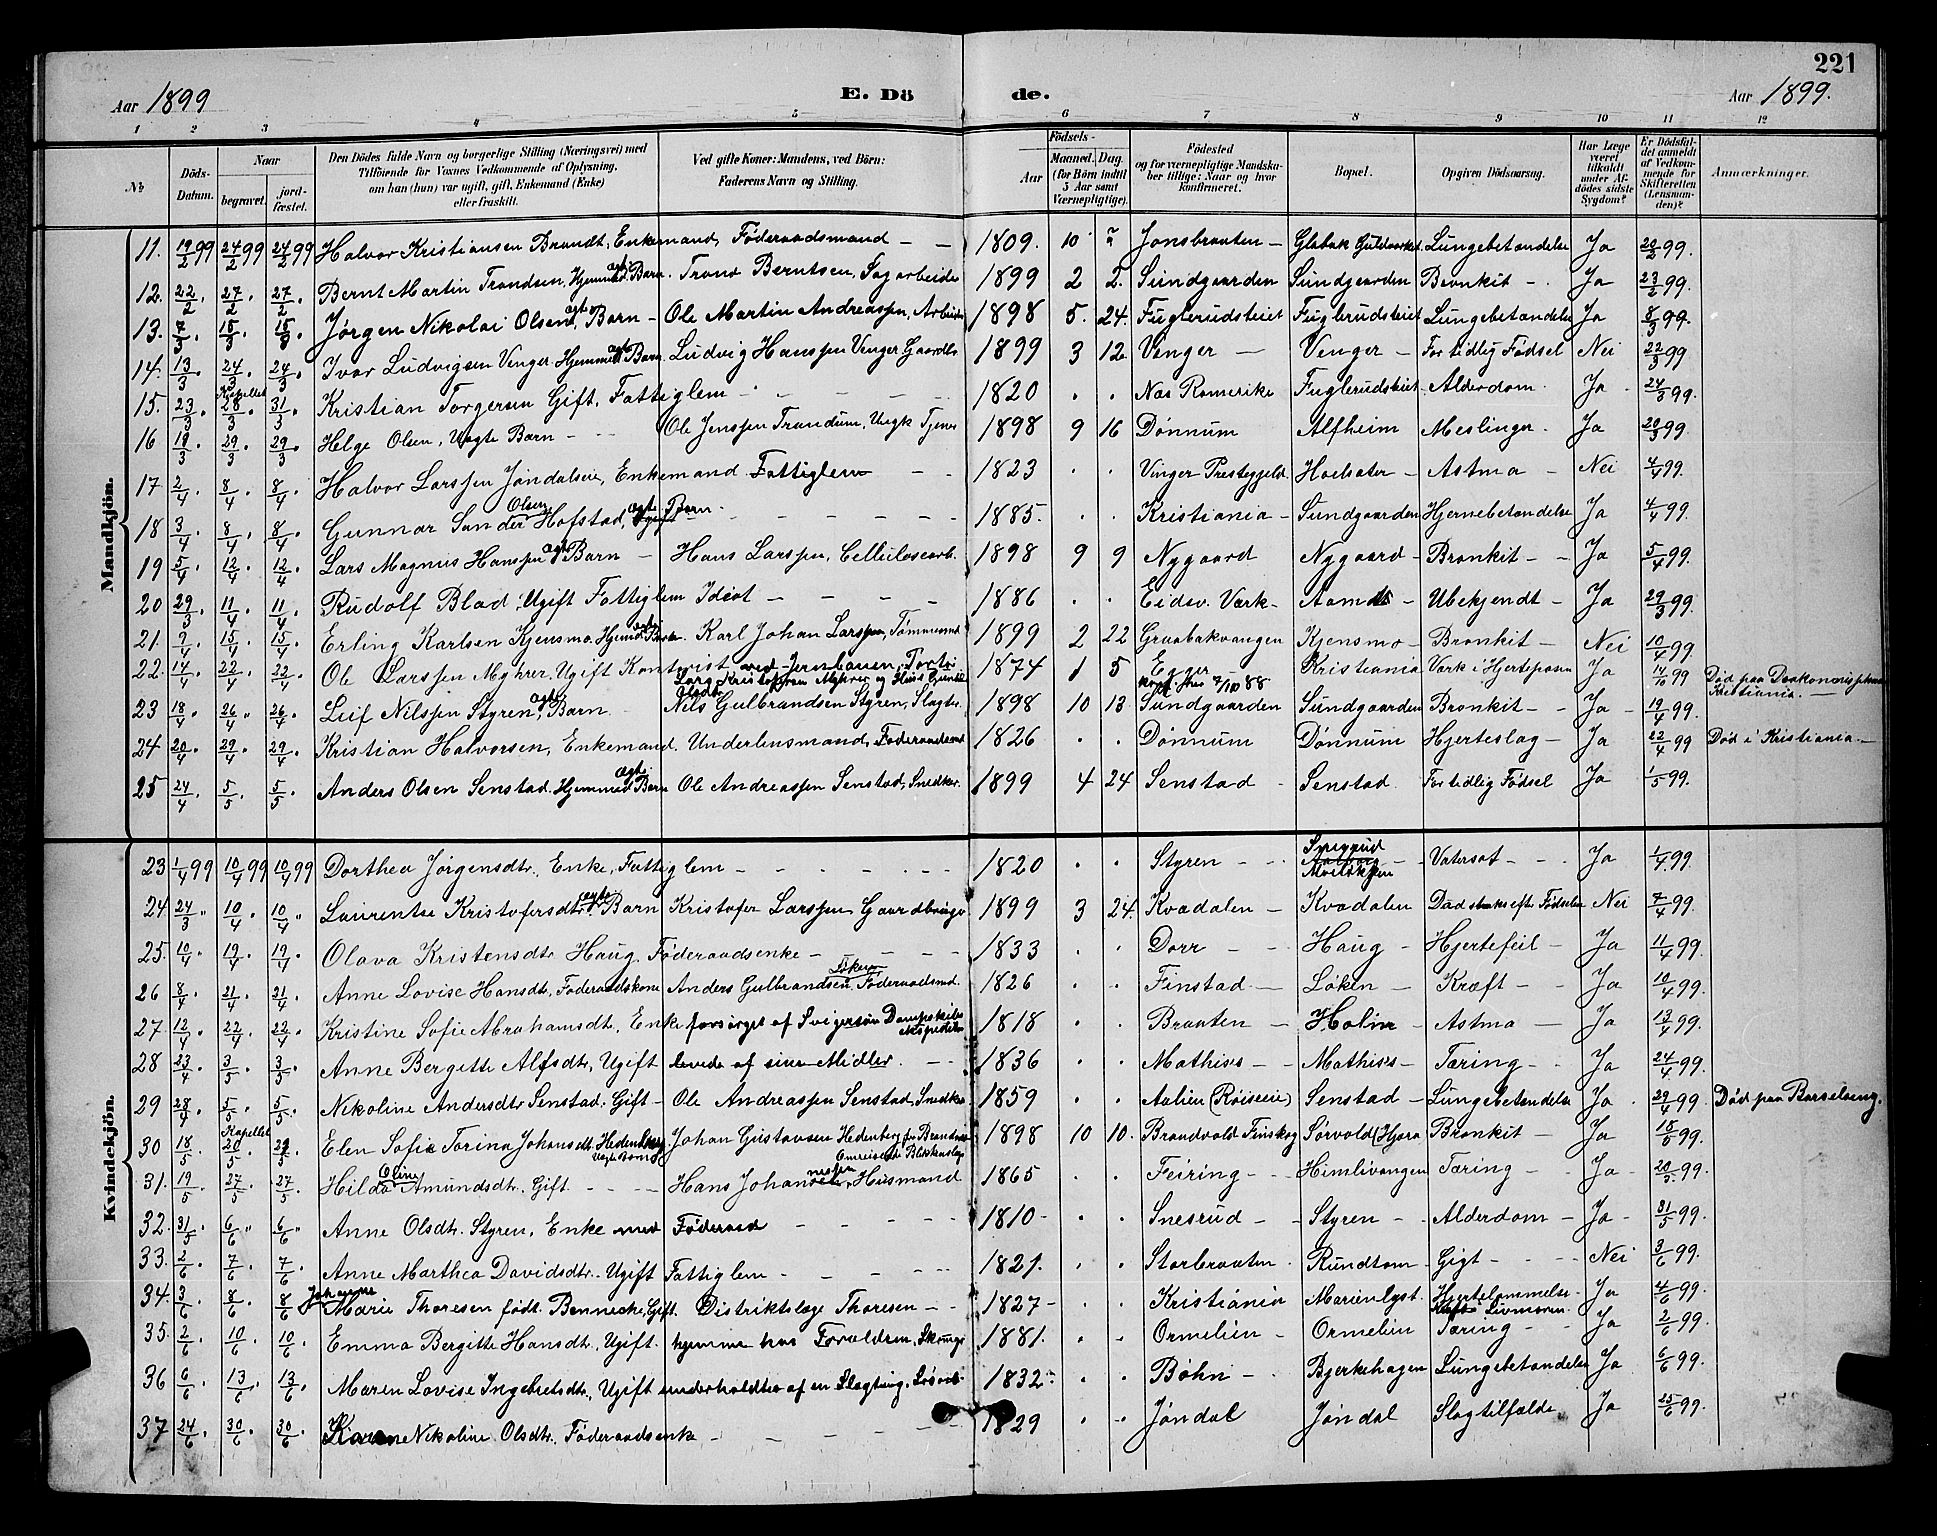 221
Aar 1899 E. Dö de. Aar 1899.
1 2 3 4 5 6 7 8 9 10 11 12
№ Döds-Datum. Naar begravet. jord-fæstet. Den Dödes fulde Navn og borgerlige Stilling (Næringsvei) med Tilföiende for Voxnes Vedkommende af Oplysning, om han (hun) var ugift, gift, Enkemand (Enke) eller fraskilt. Ved gifte Koner: Mandens, ved Börn: Faderens Navn og Stilling. Födsels- Aar Maaned. Dag. (for Börn indtil 5 Aar samt Værnepligtige). Födested og for værnepligtige Mandskaber tillige: Naar og hvor konfirmeret. Bopæl. Opgiven Dödsaarsag. Har Læge været tilkaldt under Afdödes sidste Sygdom? Er Dödsfaldet anmeldt af Vedkommende for Skifteretten (Lensmanden)? Anmærkninger.
Mandkjön.
11. 19/2 99 24/2 99 24/2 99 Halvor Kristiansen Brandt, Enkemand, Föderaadsmand – – 1809. 10 Jonsbraaten – Guldverket Lungebetændelse Ja 20/2 99.
12. 22/2. 27/2. 27/2. Bernt Martin Trondsen, Hjemmed. ægte Barn. Trond Berntsen, Sagarbeider 1899 2 2. Sundgaarden Sundgaarden Bronkit – Ja 23/2 99.
13. 7/3. 15/3. 15/3. Jørgen Nikolai Olsen, ægte Barn – Ole Martin Andreassen, Arbeider 1898 5. 24. Fuglerudsteiet Fuglerudsteiet Lungebetændelse Ja 8/3 99.
14. 13/3. 24/3. 24/3. Ivar Ludvigsen Venger Hjemmed. ægte Barn. Ludvig Hanssen Venger Gaardbr. 1899 3 12 Venger – Venger – For tidlig Fødsel Nei 22/3 99
15. 23/3. Kapellet 28/3. 31/3 Kristian Torgersen Gift, Fattiglem – – – 1820 . . Næs Romerike Fuglerudsteiet Alderdom. Ja 24/3 99.
16 19/3. 29/3. 29/3. Helge Olsen, Uægte Barn – Ole Jenssen Trandum, Ungk Tjener 1898 9 16 Dønnum Alfheim Meslinger. Ja 20/3 99.
17 2/4. 8/4. 8/4. Halvor Larssen Jøndalseie, Enkemand Fattiglem – – 1823 . . Vinger Prestegjeld. Hoelsæter – Astma – Nei 4/4 99.
18 3/4. 8/4. 8/4. Gunnar Sander Olsen Hofstad, ægte Barn. – – – 1885. . . Kristiania – Sundgaarden Hjernebetændelse Ja 4/4 99.
19 5/4. 12/4. 12/4. Lars Magnus Hanssen ægte Barn – Hans Larssen, Cellulosearb. 1898 9 9 Nygaard Nygaard – Bronkit – – Ja 5/4 99.
20 29/3. 11/4. 11/4. Rudolf Blad, Ugift Fattiglem Idiot – – – 1886 . . Eidsv. Værk – – Ubekjendt – Ja 29/3 99.
21. 9/4. 15/4. 15/4. Erling Karlsen Kjensmo, Hjemmed. ægte Barn. Karl Johan Larssen, Tømmermd 1899 2 22 Graabækvangen Kjensmo – Bronkit – Nei 10/4 99.
22. 14/4. 22/4. 22/4. Ole Larssen Myhrer, Ugift Kontorist ved Jernbanen, Forts: Lars Kristofersen Myhrer og 1874 1 5 Egger konf. her 7/10 88 Kristiania Værk i Hjerteposen Ja 14/10 99 Død paa Kristiania. –
23 18/4. 26/4. 26/4. Leif Nilssen Styren, ægte Barn. Nils Gulbrandsen Styren, Slagter. 1898 10 13 Sundgaarden Sundgaarden Bronkit – – Ja – 19/4 99.
24 20/4. 29/4. 29/4. Kristian Halvorsen, Enkemand. Underlensmand, Føderaadsmd 1826 . . Dønnum Dønnum Hjerteslag – Ja 22/4 99 Død i Kristiania. –
25 24/4. 5/5. 5/5. Anders Olsen Senstad. Hjemmed. ægte Barn Ole Andreassen Senstad, Snedker. 1899 4 24 Senstad – Senstad. For tidlig Fødsel Ja 1/5 99.
Kvindekjön.
23 1/4 99 10/4 99 10/4 99 Dorthea Jørgensdtr. Enke, Fattiglem – – – 1820 . . Styren – – Vatersot – – Ja 1/4 99.
24. 24/3. 10/4. 10/4. Laurentse Kristofersdtr. ægte Barn Kristofer Larssen Gaardbruger 1899 3 24. Kvædalen – Kvædalen Død straks efter Fødselen Nei 7/4 99.
25. 10/4. 19/4. 19/4. Olava Kristensdtr. Haug. Føderaadsenke – – – 1833 . . Dorr – – Haug – Hjertefeil – Ja 11/4 99.
26 8/4. 21/4. 21/4. Anne Lovise Hansdtr, Føderaadskone Anders Gulbrandsen Løken Føderaadsmd. 1826 . . Finstad – Løken – Kræft – – Ja 10/4 99.
27. 12/4. 22/4. 22/4. Kristine Sofie Abrahamsdtr, Enke forsørget af Svigersøn Dampskibsekspeditør 1818 . . Braaten – Holin – Astma – Ja 13/4 99.
28 23/4. 3/5. 3/5. Anne Bergitte Alfsdtr, Ugift levede af sine Midler. – – 1836 . . Mathises – Mathises – Tæring – Ja 24/4 99.
29 28/4. 5/5. 5/5. Nikoline Andersdtr Senstad. Gift – Ole Andreassen Senstad, Snedker 1859 . . Aalien (Røiseeie) Senstad – Lungebetændelse Ja . 29/4 99. Død paa Barselseng.
30 18/5. Kapellet 20/5. 22/5. Elen Sofie Torina Johansdtr. Hedenberg. ægte Barn Johan Gustavsen Hedenberg Omreisende Blikkenslager 1898 10 10. Brandvold Finskog Sørvold (Hjera Bronkit – Ja 18/5 99.
31. 19/5. 27/5. 27/5. Hilda Oline Amundsdtr. Gift – – – Hans Johannessen, Husmand 1865 . . Feiring – – Himlivangen Tæring – Ja . 20/5 99.
32. 31/5. 6/6. 6/6. Anne Olsdtr. Styren, Enke med Føderaad – – – 1810 – . . Snesrud – Styren – – Alderdom – Ja – 31/5 99.
33. 2/6. 7/6. 7/6. Anne Marthea Davidsdtr. Ugift Fattiglem – – – 1821. . . Storbraaten. Rundtom Gigt – – – Nei 3/6 99.
34. 3/6. 8/6. 8/6 Johanne Marie Thoresen født Bennecke, Gift. Distriktslæge Thoresen – – 1827 – . . Kristiania Marienlyst. Hjertelammelse. Livmoren. Ja 4/6 99.
35. 2/6. 10/6. 10/6. Emma Bergitte Hansdtr, Ugift. hjemme hos Forældrene, 1881. . . Ormelien – Ormelien Tæring – – Ja 2/6 99.
36 6/6. 13/6. 13/6. Maren Lovise Ingebretsdtr, Ugift underholdtes af en Slægtning, 1832 – . . Bøhn – Bjerkehagen Lungebetændelse Ja 6/6 99.
37 24/6. 30/6. 30/6. Karen Nikoline Olsdtr. Føderaadsenke – – – 1829 . . Jøndal Jøndal Slagtilfælde Ja 25/6 99.